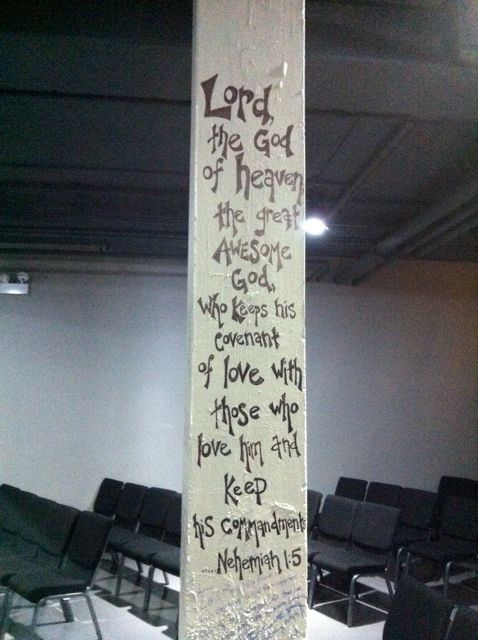 Lord,
the God
of heaven
the great
AWESOME
God,
who keeps his
covenant
of love with
those who
love him and
keep
his commandments
.....Nehemiah 1:5